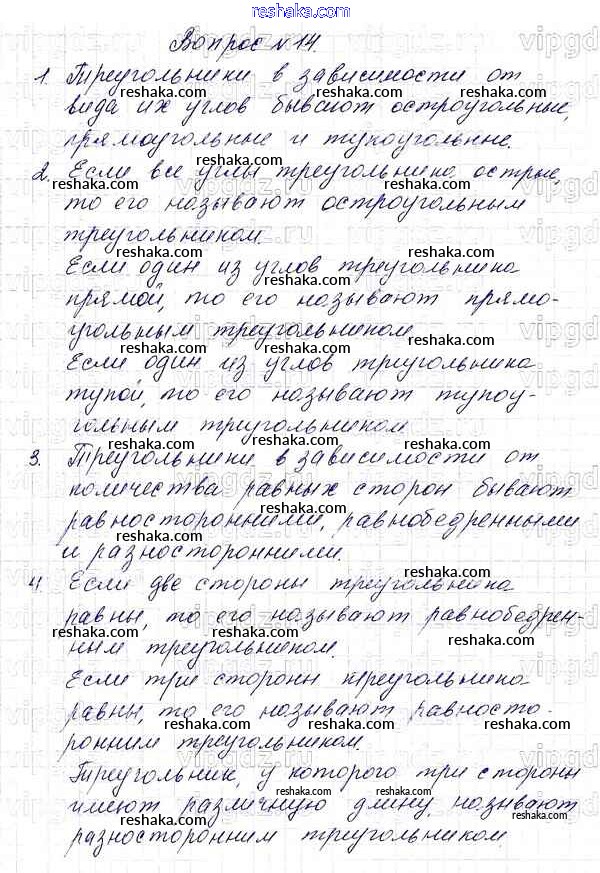 reshaka.com
Вопрос №14
1. Треугольники в зависимости от
вида их углов бывают остроугольные,
прямоугольные и тупоугольные.
2. Если все углы треугольника острые,
то его называют остроугольным
треугольником.
Если один из углов треугольника
прямой, то его называют прямо-
угольным треугольником
Если один из углов триугольника
тупой, то его называют тупоу-
гольным триугольником
3. Треугольники в зависимости от
количества равных сторон бывают
равносторонними, равнобедренными
и разносторонними.
4. Если две стороны треугольника
равны, то его называют равнобедрен-
ным треугольником.
Если три стороны треугольника
равны, то его называют равносто-
ронним треугольником.
Треугольник, у которого три стороны
имеют различную длину, называют
разносторонним треугольником.